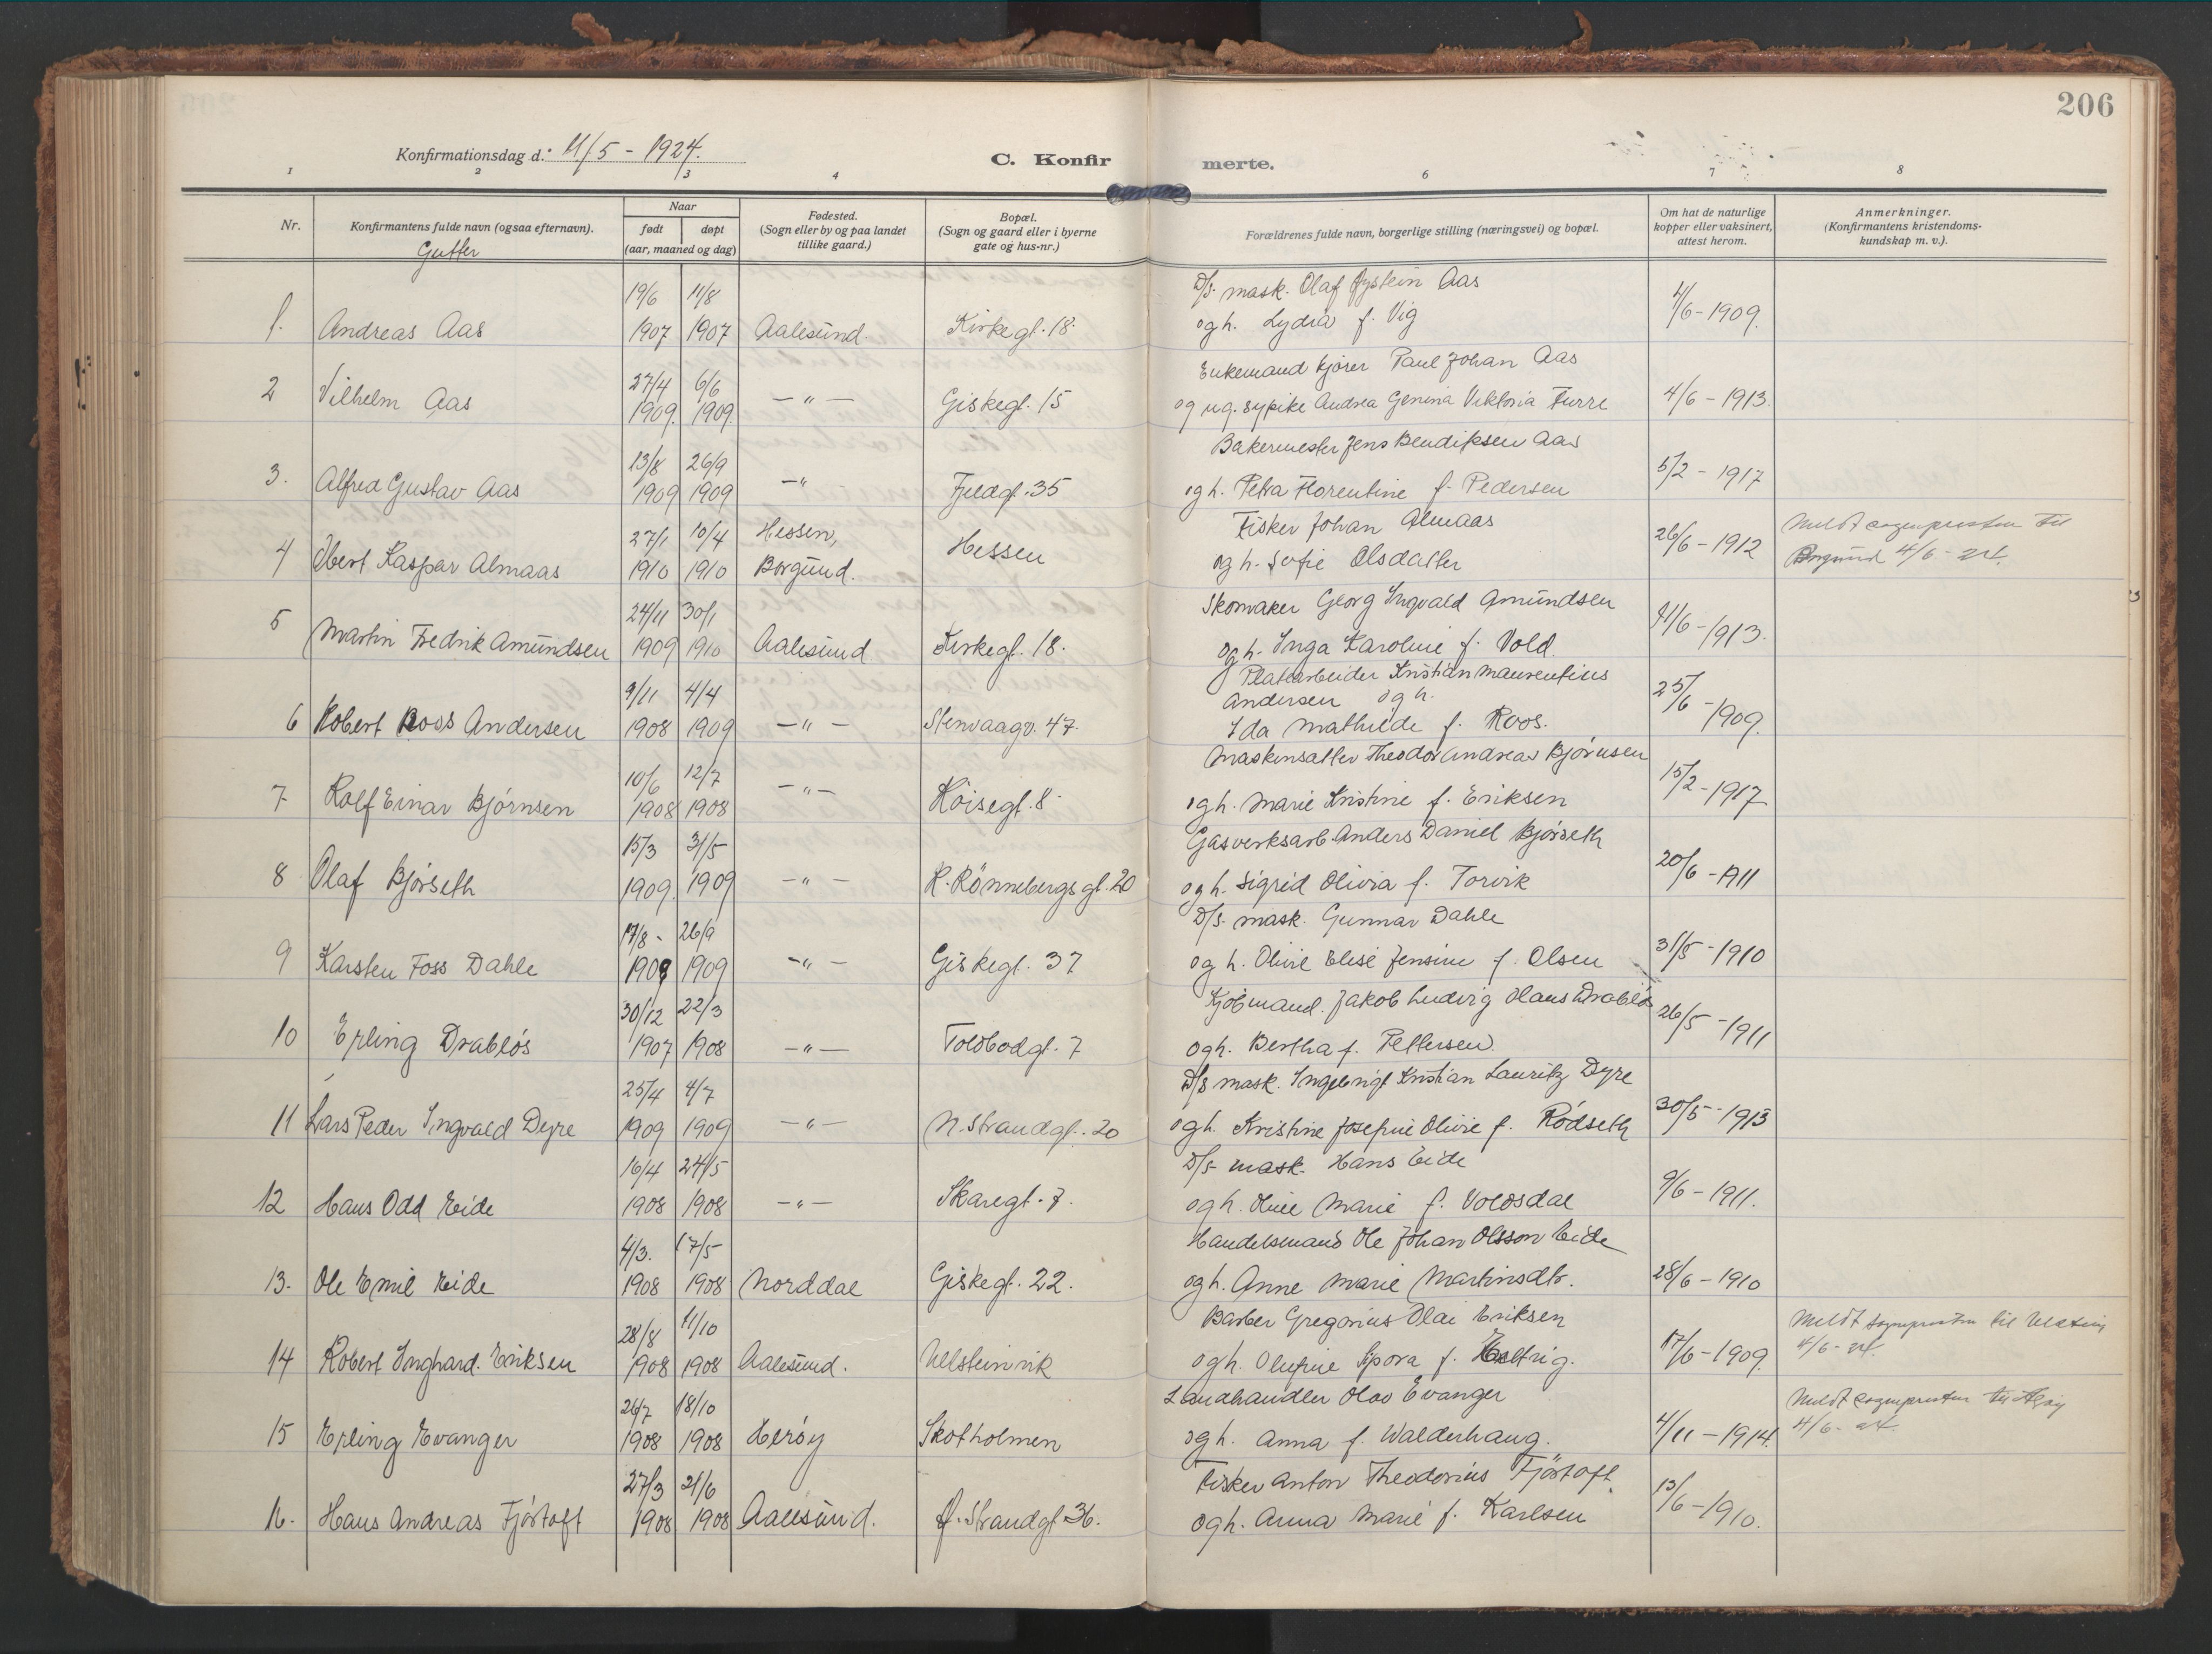 206
Konfirmationsdag d. 11/5 - 1924.
C. Konfirmerte.
1 2 3 4 6 7 8
Nr.
Konfirmantens fulde navn (ogsaa efternavn).
Gutter
Naar
født døpt
(aar, maaned og dag)
Fødested.
(Sogn eller by og paa landet
tillike gaard.)
Bopæl.
(Sogn og gaard eller i byerne
gate og hus-nr.)
Forældrenes fulde navn, borgerlige stilling (næringsvei) og bopæl.
Om hat de naturlige
kopper eller vaksinert,
attest herom.
Anmerkninger.
(Konfirmantens kristendoms-
kundskap m. v.).
19/6 11/8 D/s. mask. Olaf Øystein Aas
1. Andreas Aas 1907 1907 Aalesund Kirkegt. 18. og h. Lydia f. Vig 4/6 - 1909.
27/4 6/6 Enkemand kjører Paul Johan Aas
2 Vilhelm Aas 1909. 1909. — " — Giskegt. 15 og ug. sypike Andrea Genina Viktoria Furre 4/6 - 1913.
13/8 26/9 Bakermester Jens Bendiksen Aas
3. Alfred Gustav Aas 1909 1909 — " Fjeldgt. 35 og h. Petra Florentine f. Pedersen 5/2 - 1917
27/1 10/4 Hessen, Fisker Johan Almaas Meldt sognepresten til
4 Obert Kaspar Almaas 1910 1910 Borgund. Hessen og h. Sofie Olsdatter 26/6 - 1912 Borgund 4/6 - 24.
24/11 30/1 Skomaker Georg Ingvald Amundsen
5 Martin Fredrik Amundsen 1909 1910 Aalesund Kirkegt. 18. og h. Inga Karoline f. Vold. 11/6 - 1913.
9/11 4/4 Platearbeider Kristian Maurentius
Andersen og h.
6 Robert Roos Andersen 1908 1909 — " — Stenvaagv. 47. Ida Mathilde f. Roos. 25/6 - 1909.
10/6 12/7 Maskinsatter Theodor Andreas Bjørnsen
7 Rolf Einar Bjørnsen 1908 1908 — " — Kôisegt. 8. og h. Marie Kristine f. Eriksen 15/2 - 1917
15/3 31/5 Gasverksarb. Anders Daniel Bjørseth
8 Olaf Bjørseth 1909. 1909 — " — R. Rönnebergs gt. 20 og h. Sigrid Olivia f. Torvik 20/6 - 1911
17/8 - 26/9 D/s. mask. Gunnar Dahle
9 Karsten Foss Dahle 1909 1909 — " — Giskegt. 37 og h. Olivie Elise Jensine f. Olsen 31/5 - 1910
30/12 22/3 Kjöbmand. Jakob Ludvig Hans Drabløs
10 Erling Drabløs 1907 1908 — " — Toldbodgt. 7 og h. Bertha f. Pettersen. 26/5 - 1911
25/4 4/7 D/s mask. Ingebrigt Kristian Lauritz Dyre
11 Lars Peder Ingvald Dyre 1909 1909 — " — N. Strandgt. 20 og h. Kristine Josefine Olivie f. Rødseth 30/5 - 1913
16/4 24/5 D/s mask. Hans Eide
12 Hans Odd Eide 1908 1908 — " — Skaregt. 7. og h. Oline Marie f. Voldsdal 9/6 - 1911.
4/3. 17/5 Handelsmand Ole Johan Olsson Eide
13. Ole Emil Eide 1908 1908 Norddal Giskegt. 22. og h. Anne Marie Martinsdtr. 28/6 - 1910
28/8 11/10 Barber Gregorius Olai Eriksen Meldt sognepresten til Ulstein
14 Robert Inghard. Eriksen 1908 1908 Aalesund. Ulsteinvik og h. Olufine f. 17/6 - 1909. 4/6 - 24.
26/7 18/10 Landhandler Olav Evanger Meldt sognepresten til Herøy
15 Erling Evanger 1908 1908 Herøy Skotholmen og h. Anna f. Walderhaug. 4/11 - 1914. 4/6 - 24.
27/3 21/6 Fisker Anton Theodorius Fjørtoft.
16. Hans Andreas Fjørtoft 1908 1908 Aalesund. Ø. Strandgt 36. og h. Anna Marie f. Karlsen 13/6 - 1910.